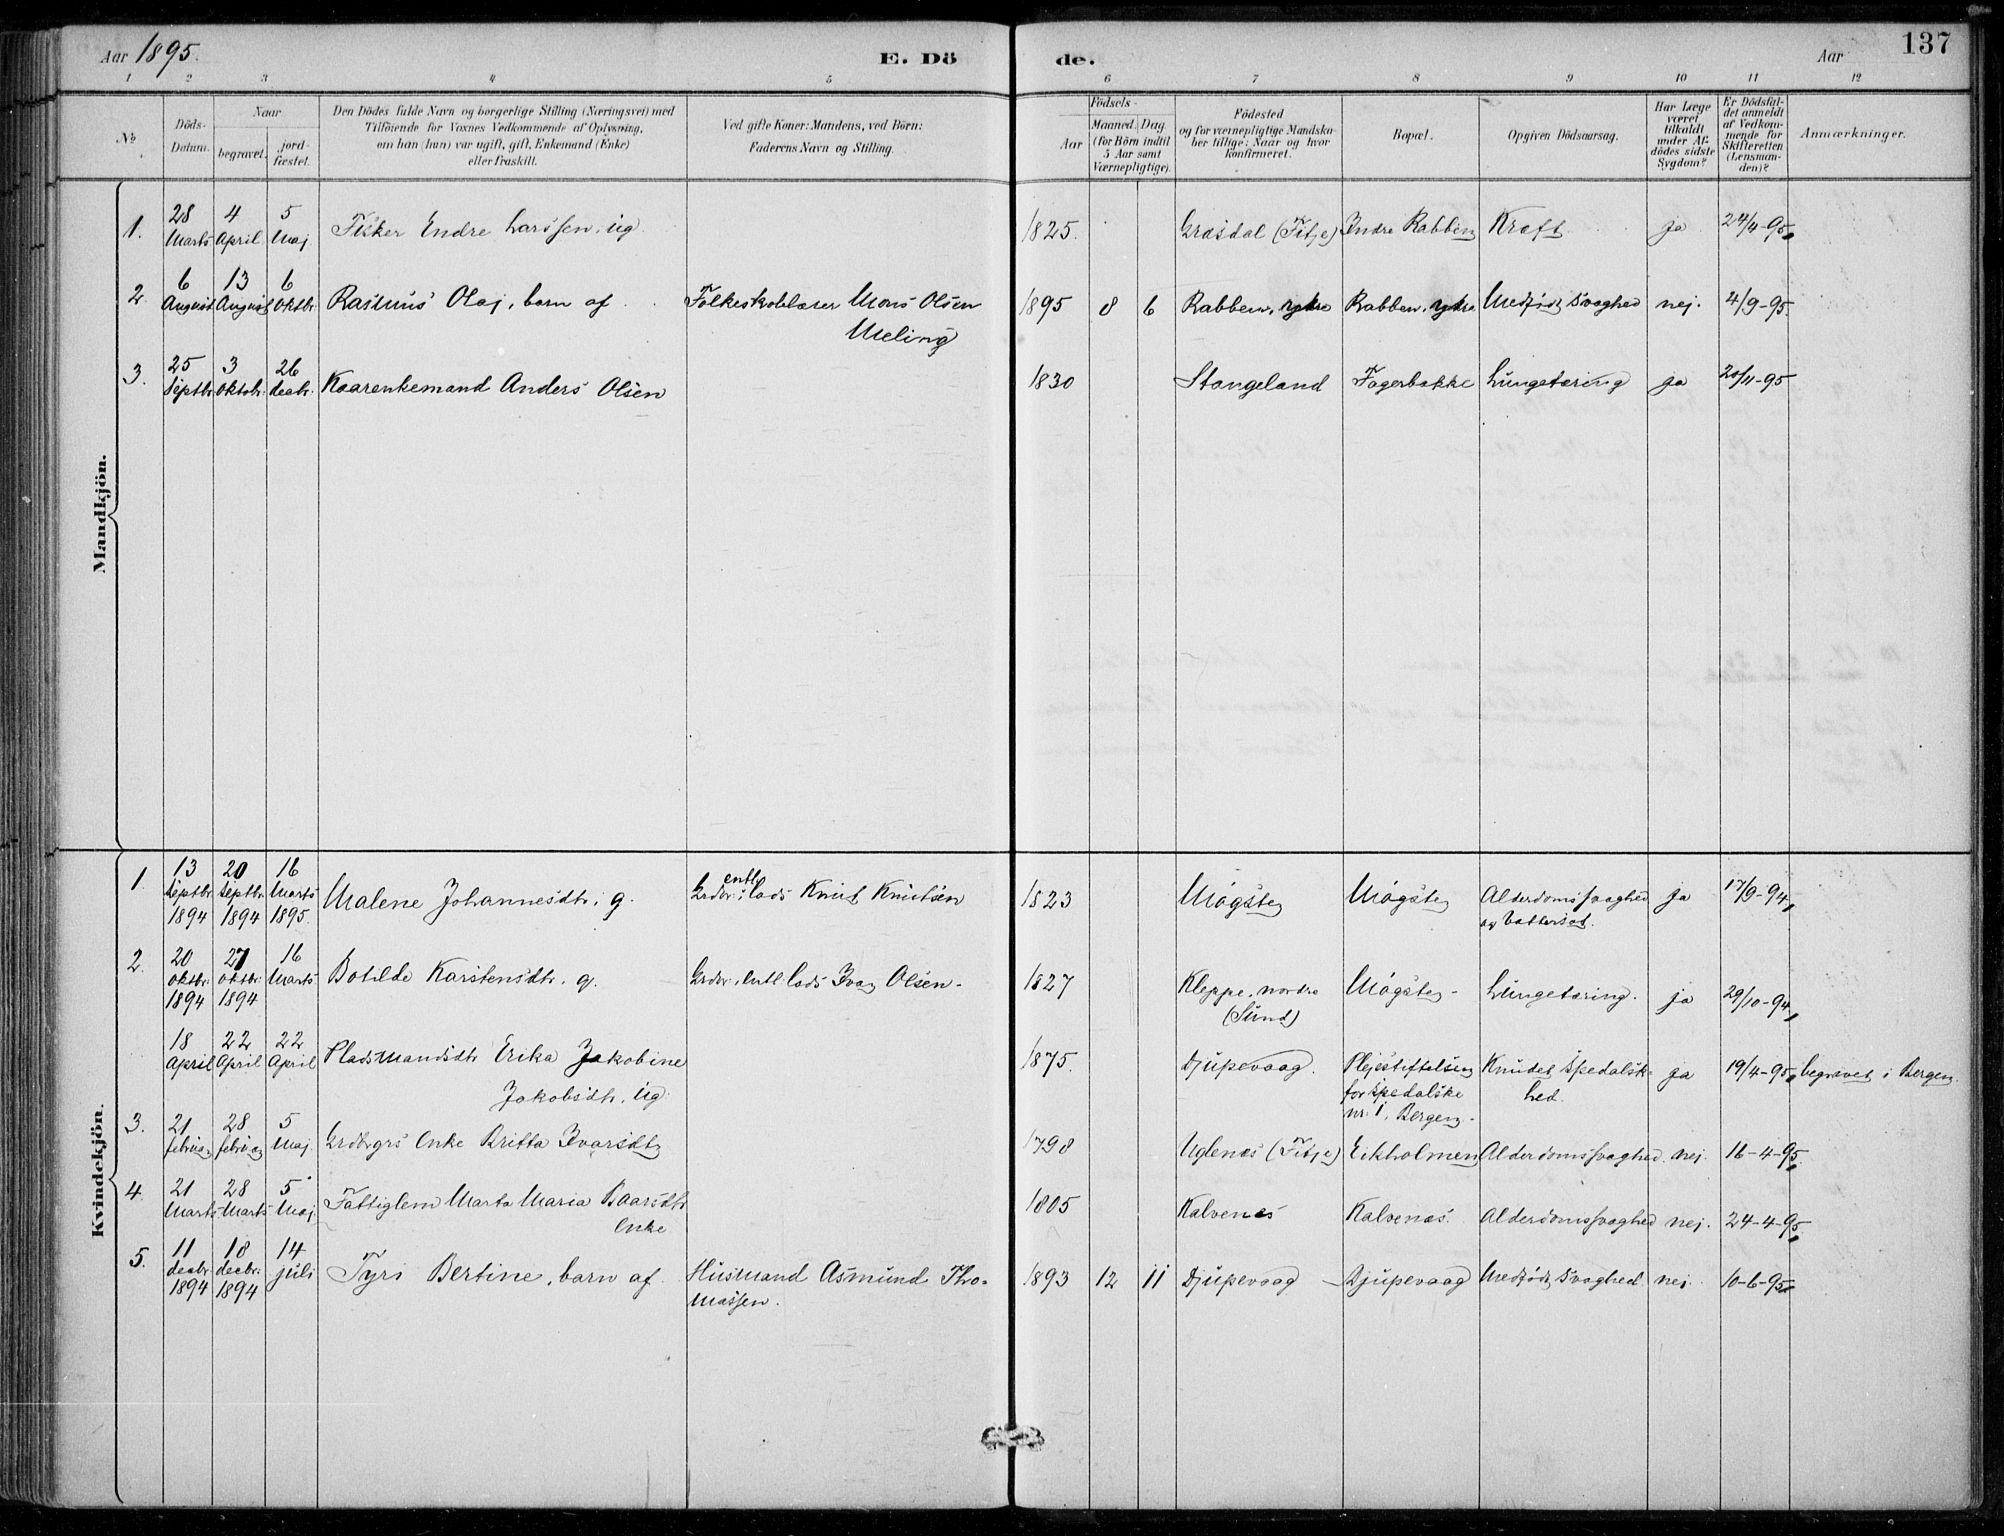 Aar 1895.
E. Dö
de.
Aar
137
1 2 3 4 5 6 7 8 9 10 11 12
No
Döds-
Datum.
Naar
begravet.
jord-
fæstet.
Den Dödes fulde Navn og borgerlige Stilling (Næringsvei) med
Tilföiende for Voxnes Vedkommende af Oplysning,
om han (hun) var ugift, gift, Enkemand (Enke)
eller fraskilt.
Ved gifte Koner: Mandens, ved Börn:
Faderens Navn og Stilling.
Födsels-
Aar
Maaned. Dag
(for Börn indtil
5 Aar samt
Værnepligtige).
Födested
og for værnepligtige Mandska-
ber tillige: Naar og hvor
konfirmeret.
Bopæl.
Opgiven Dödsaarsag.
Har Læge
været
tilkaldt
under Af-
dödes sidste
Sygdom?
Er Dödsfal-
det anmeldt
af Vedkom-
mende for
Skifteretten
(Lensman-
den)?
Anmærkninger.
Mandkjön.
1. 28 Marts 4 April 5 Maj Fisker Endre Larssen, ug. 1825. Græsdal (Fitje) Indre Rabben Kræft ja 24/4-95
2 6 August 13 August 6 Oktbr. Rasmus Olaj, barn af Folkeskolelærer Mons Olsen
Meling 1895 8 6 Rabben, ytre Rabben, ytre Medfødt Svaghed nej. 4/9-95.
3. 25 Septbr 3 Oktobr. 26 decbr. Kaarenkemand Anders Olsen 1830 Stangeland Fagerbakke Lungetæring ja 20/11-95
Kvindekjön.
1. 13 Septbr. 1894 20 Septbr. 1894 16 Marts 1895. Malene Johannesdtr. g. Grdbr. entl. Lods Knut Knutsen 1823 Møgster Møgster Alderdomssvaghed
og Vattersot. ja 17/9-94
2. 20 Oktbr. 1894 27 Oktbr. 1894 16 Marts Botilde Karstensdtr. g. Grdbr. entl. Lods Ivar Olsen. 1827 Kleppe, nordre
(Sund) Møgster Lungetæring. ja 29/10-94
18 April 22 April 22 April Pladsmandsdtr Erika Jakobine
Jakobsdtr. ug. 1875. Djupevaag. Plejestiftelsen
for spedalske
nr. 1, Bergen. Knudet Spedalsk-
hed. ja 19/4-95 begravet i Bergen.
3. 21 februar 28 februar 5 Maj. Grdbrgrs Enke Britta Ivarsdtr 1798 Uglenæs (Fitje) Eikholmen Alderdomssvaghed. nej. 16-4-95
4. 21 Marts 28 Marts 5 Maj Fattiglem Marta Maria Baarsdtr
Enke 1805 Kalvenæs Kalvenæs. Alderdomssvaghed nej. 24-4-95
5. 11 decbr. 1894 18 decbr. 1894 14 juli Tyri Bertine, barn af Husmand Asmund Tho-
massen. 1893 12 11 Djupevaag Djupevaag Medfødt Svaghed nej. 10-6-95